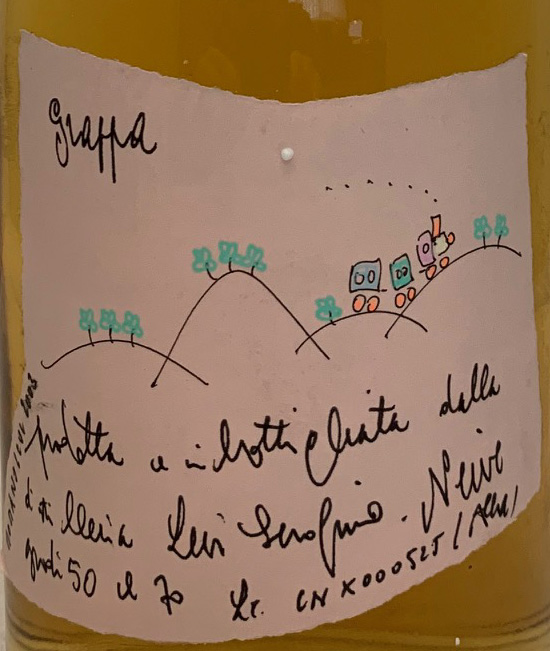 Grappa
prodotta e imbottigliata dalla
distilleria Levi Serafino. Neive
gradi 50 cl 70 Lic. CNX00052J (Alba)
2003